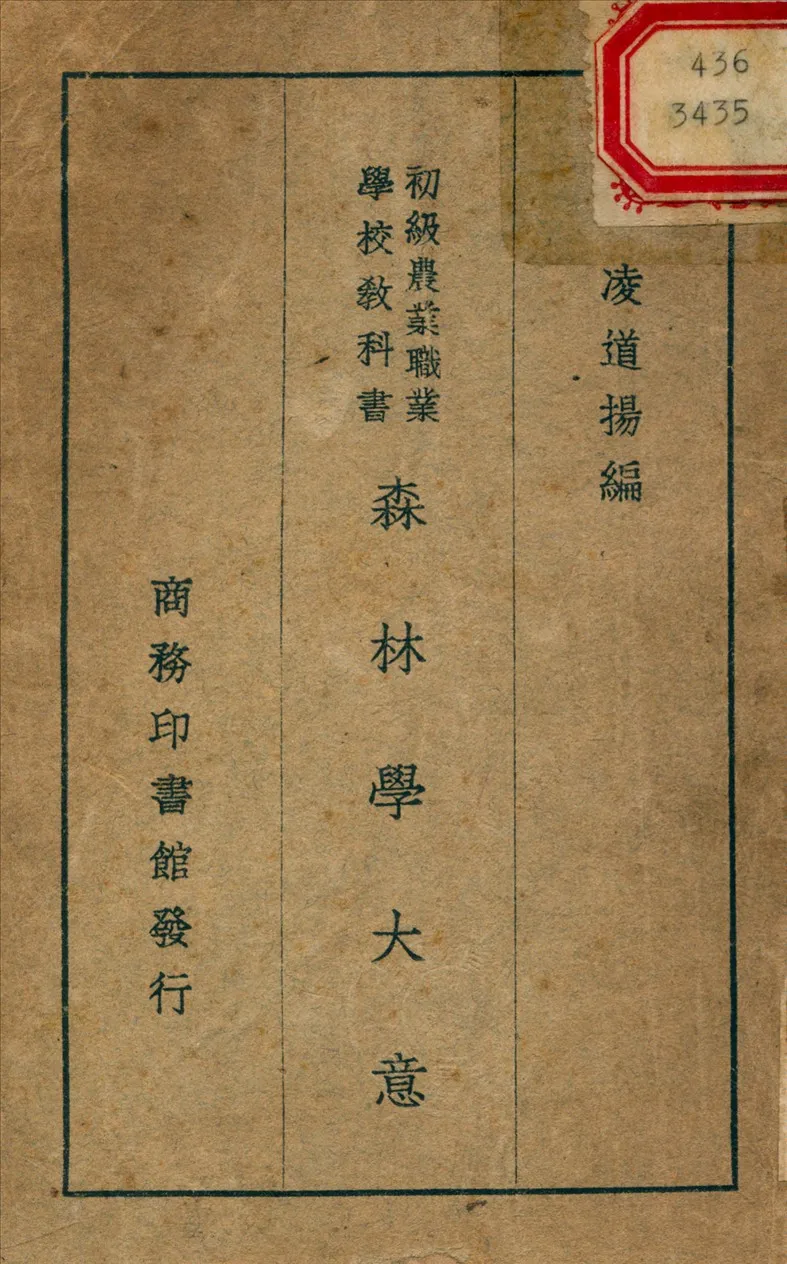 436
3435
凌道揚編
初級農業職業
學校教科書
森林學大意
商務印書館發行